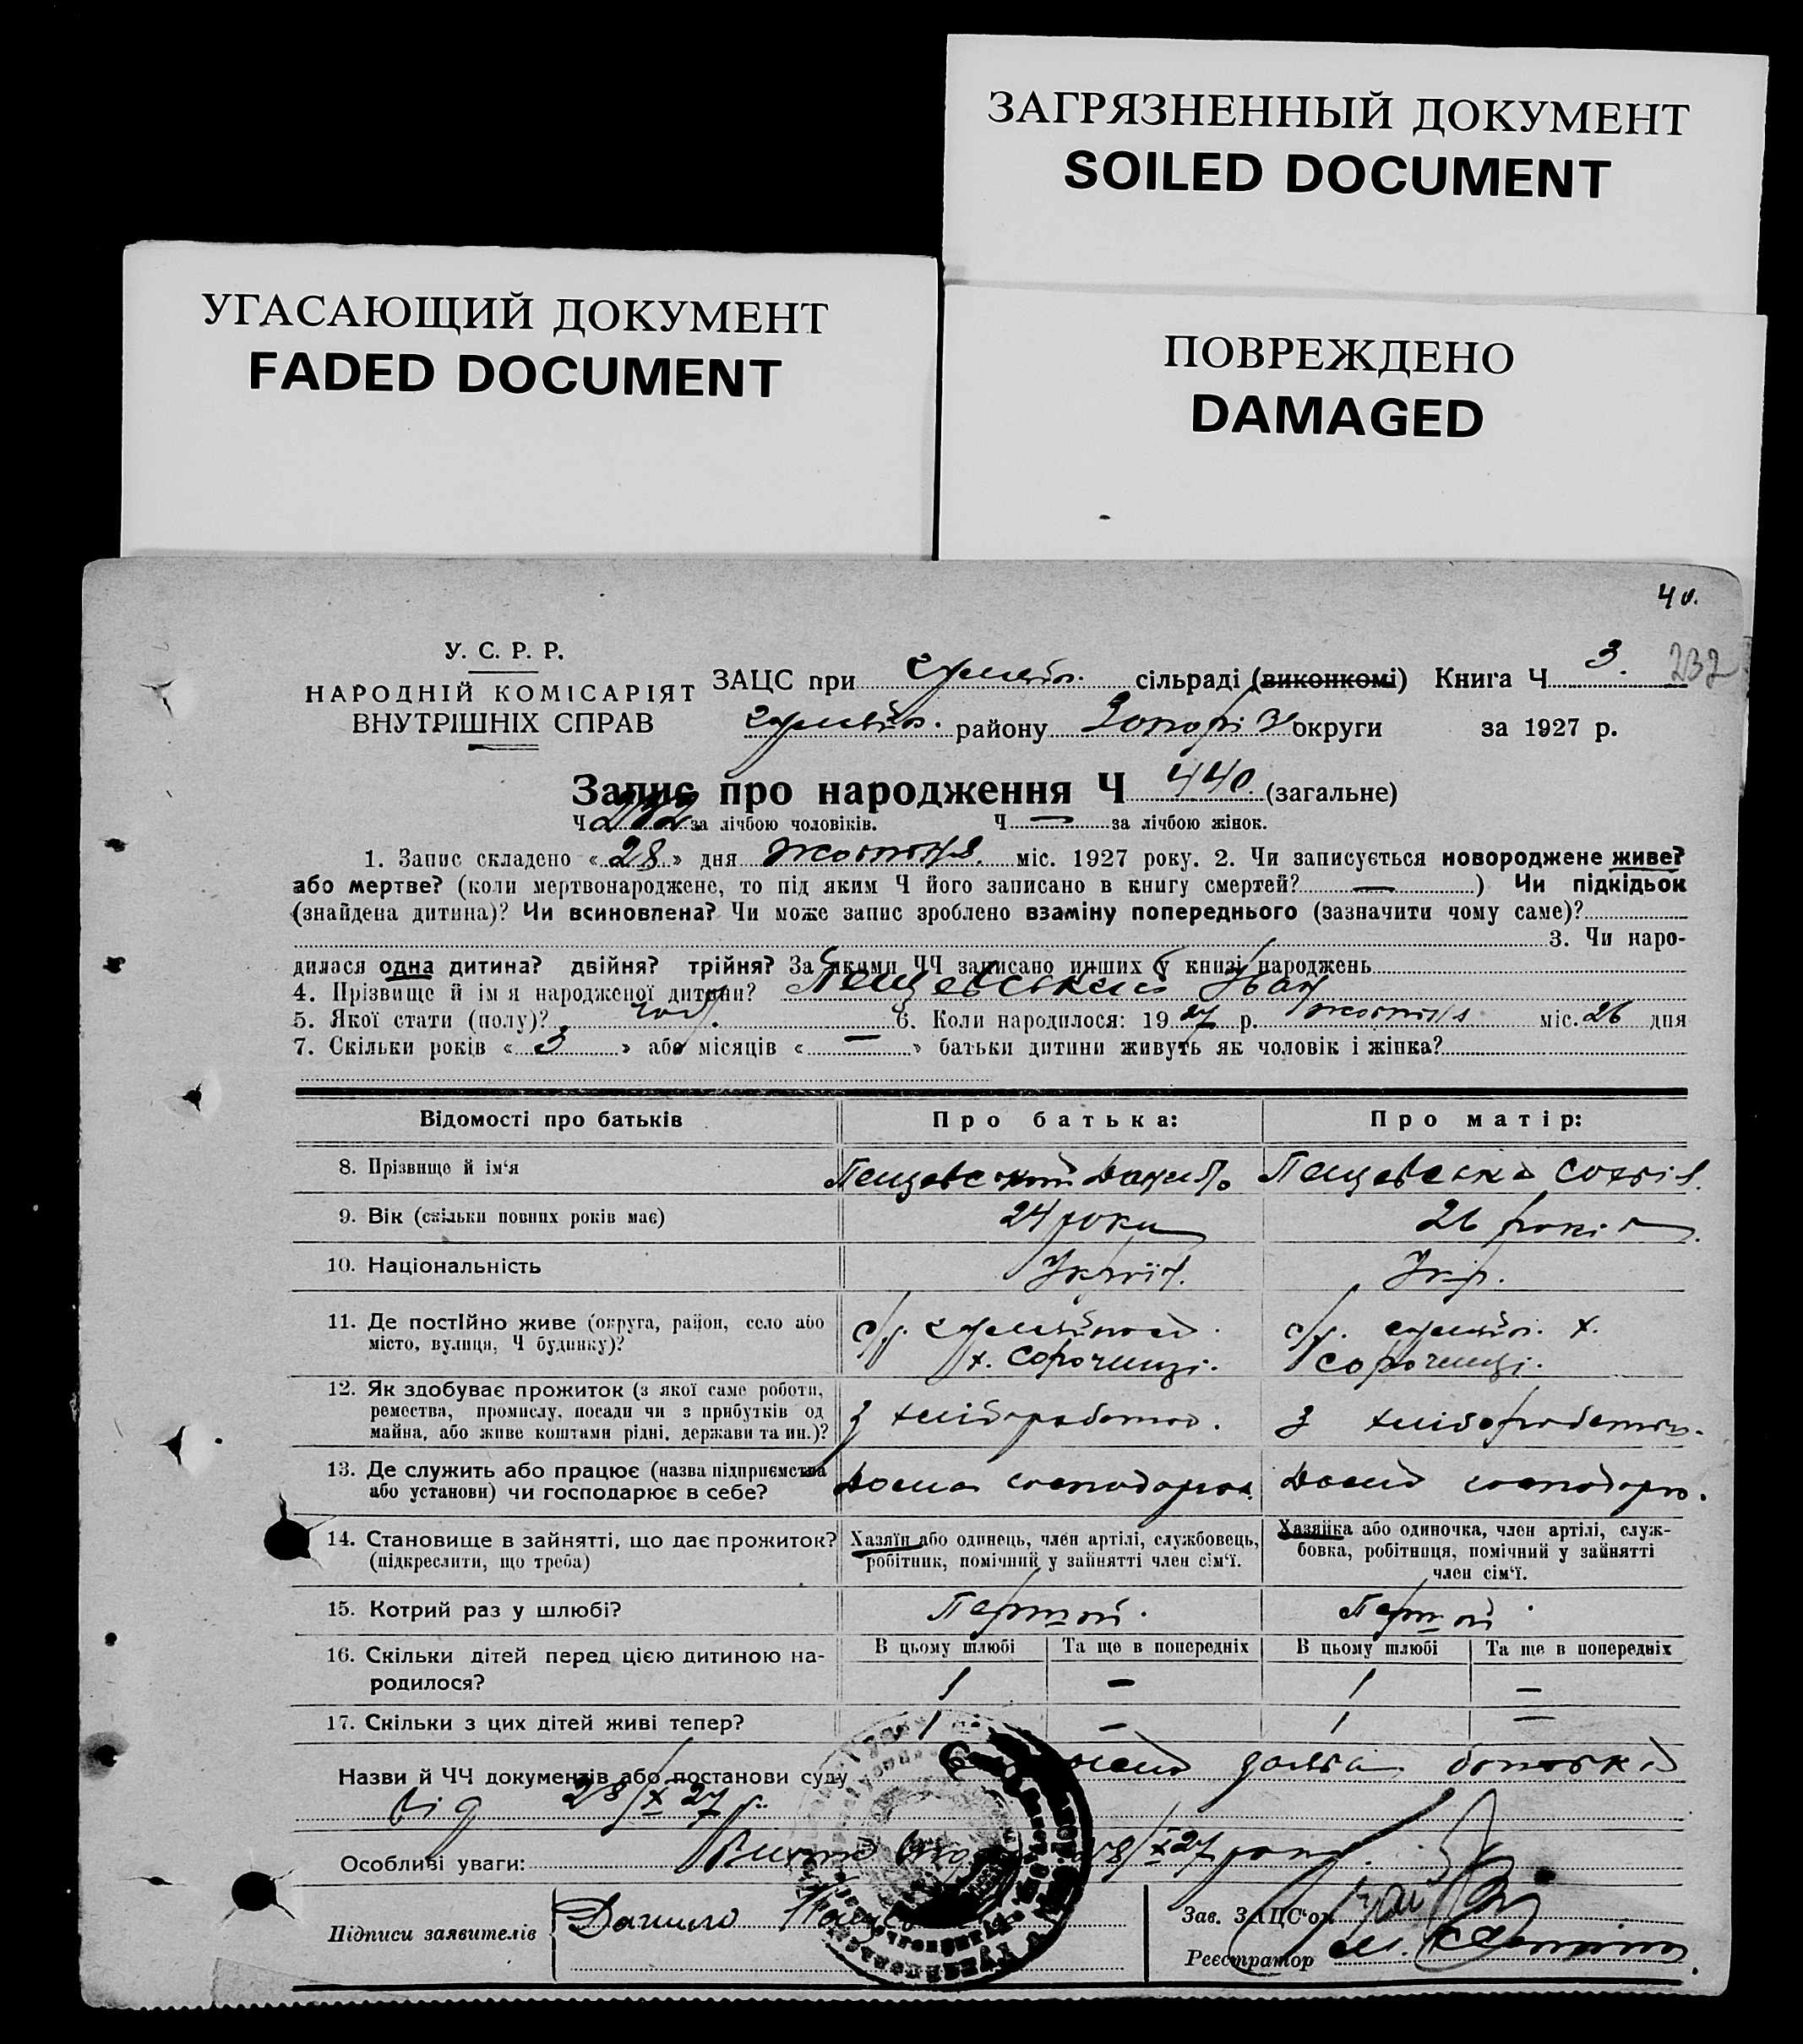 ЗАГРЯЗНЕННЫЙ ДОКУМЕНТ
SOILED DOCUMENT
УГАСАЮЩИЙ ДОКУМЕНТ
FADED DOCUMENT
ПОВРЕЖДЕНО
DAMAGED
40.
232
У. С. Р. Р.
НАРОДНІЙ КОМІСАРІЯТ
ВНУТРІШНІХ СПРАВ
ЗАЦС при сільраді (виконкомі) Книга Ч 3.
району Запоріз округи за 1927 р.
Запис про народження Ч 440. (загальне)
Ч 232 за лічбою чоловіків. Ч — за лічбою жінок.
1. Запис складено « 28 » дня жовтня міс. 1927 року. 2. Чи записується новороджене живе?
або мертве? (коли мертвонароджене, то під яким Ч його записано в книгу смертей? — ) Чи підкідьок
(знайдена дитина)? Чи всиновлена? Чи може запис зроблено взаміну попереднього (зазначити чому саме)?
3. Чи наро-
дилася одна дитина? двійня? трійня? За якими ЧЧ записано инших у книзі народжень
4. Прізвище й ім я народженої дитини? Пещевський Іван
5. Якої стати (полу)? чол. 6. Коли народилося: 19 27 р. жовтня міс. 26 дня
7. Скільки років « 3 » або місяців « — » батьки дитини живуть як чоловік і жінка?
Відомості про батьків Про батька: Про матір:
8. Прізвище й ім'я Пещевський Данило Пещевська Софія
9. Вік (скільки повних років має) 24 роки 26 років
10. Національність Україн. Укр.
11. Де постійно живе (округа, район, село або
місто, вулиця, Ч будинку)?
х. Сорочинці. х. Сорочинці.
12. Як здобуває прожиток (з якої саме роботи,
ремества, промислу, посади чи з прибутків од
майна, або живе коштами рідні, держави та ин.)?
З хліборобства. З хліборобства.
13. Де служить або працює (назва підприємства
або установи) чи господарює в себе?
Дома господарює. Дома господарює.
14. Становище в зайнятті, що дає прожиток?
(підкреслити, що треба)
Хазяїн або одинець, член артілі, службовець,
робітник, помічний у зайнятті член сім'ї.
Хазяйка або одиночка, член артілі, служ-
бовка, робітниця, помічний у зайнятті
член сім'ї.
15. Котрий раз у шлюбі? Перший. Перший.
16. Скільки дітей перед цією дитиною на-
родилося?
В цьому шлюбі Та ще в попередніх В цьому шлюбі Та ще в попередніх
1 — 1 —
17. Скільки з цих дітей живі тепер? 1 — 1 —
Назви й ЧЧ документів або постанови суду заява батька
від 28/X 27 р.
Особливі уваги: 28/X 27 року.
Підписи заявителів Данило
Зав. ЗАЦС'ом
Реєстратор